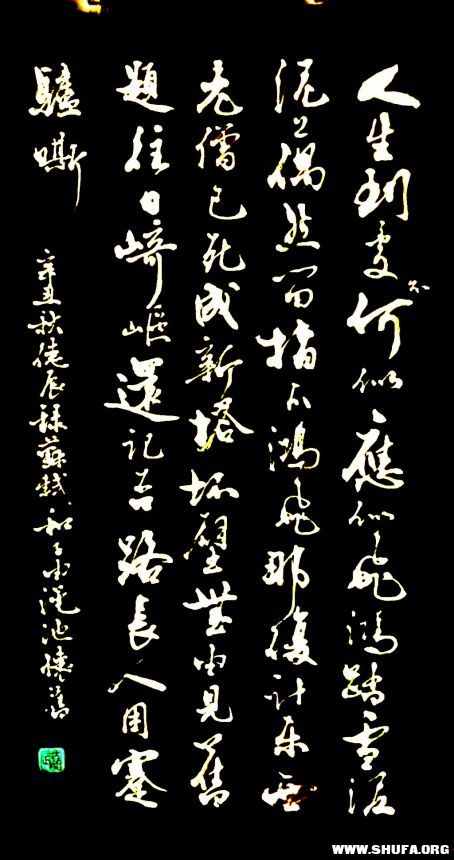 人生到處知何似應似飛鴻踏雪泥
泥上偶然留指爪鴻飛那復計東西
老僧已死成新塔坏壁無由見舊
題往日崎嶇還記否路長人困蹇
驢嘶
辛丑秋辰録蘇軾和子由澠池懷舊
WWW.SHUFA.ORG